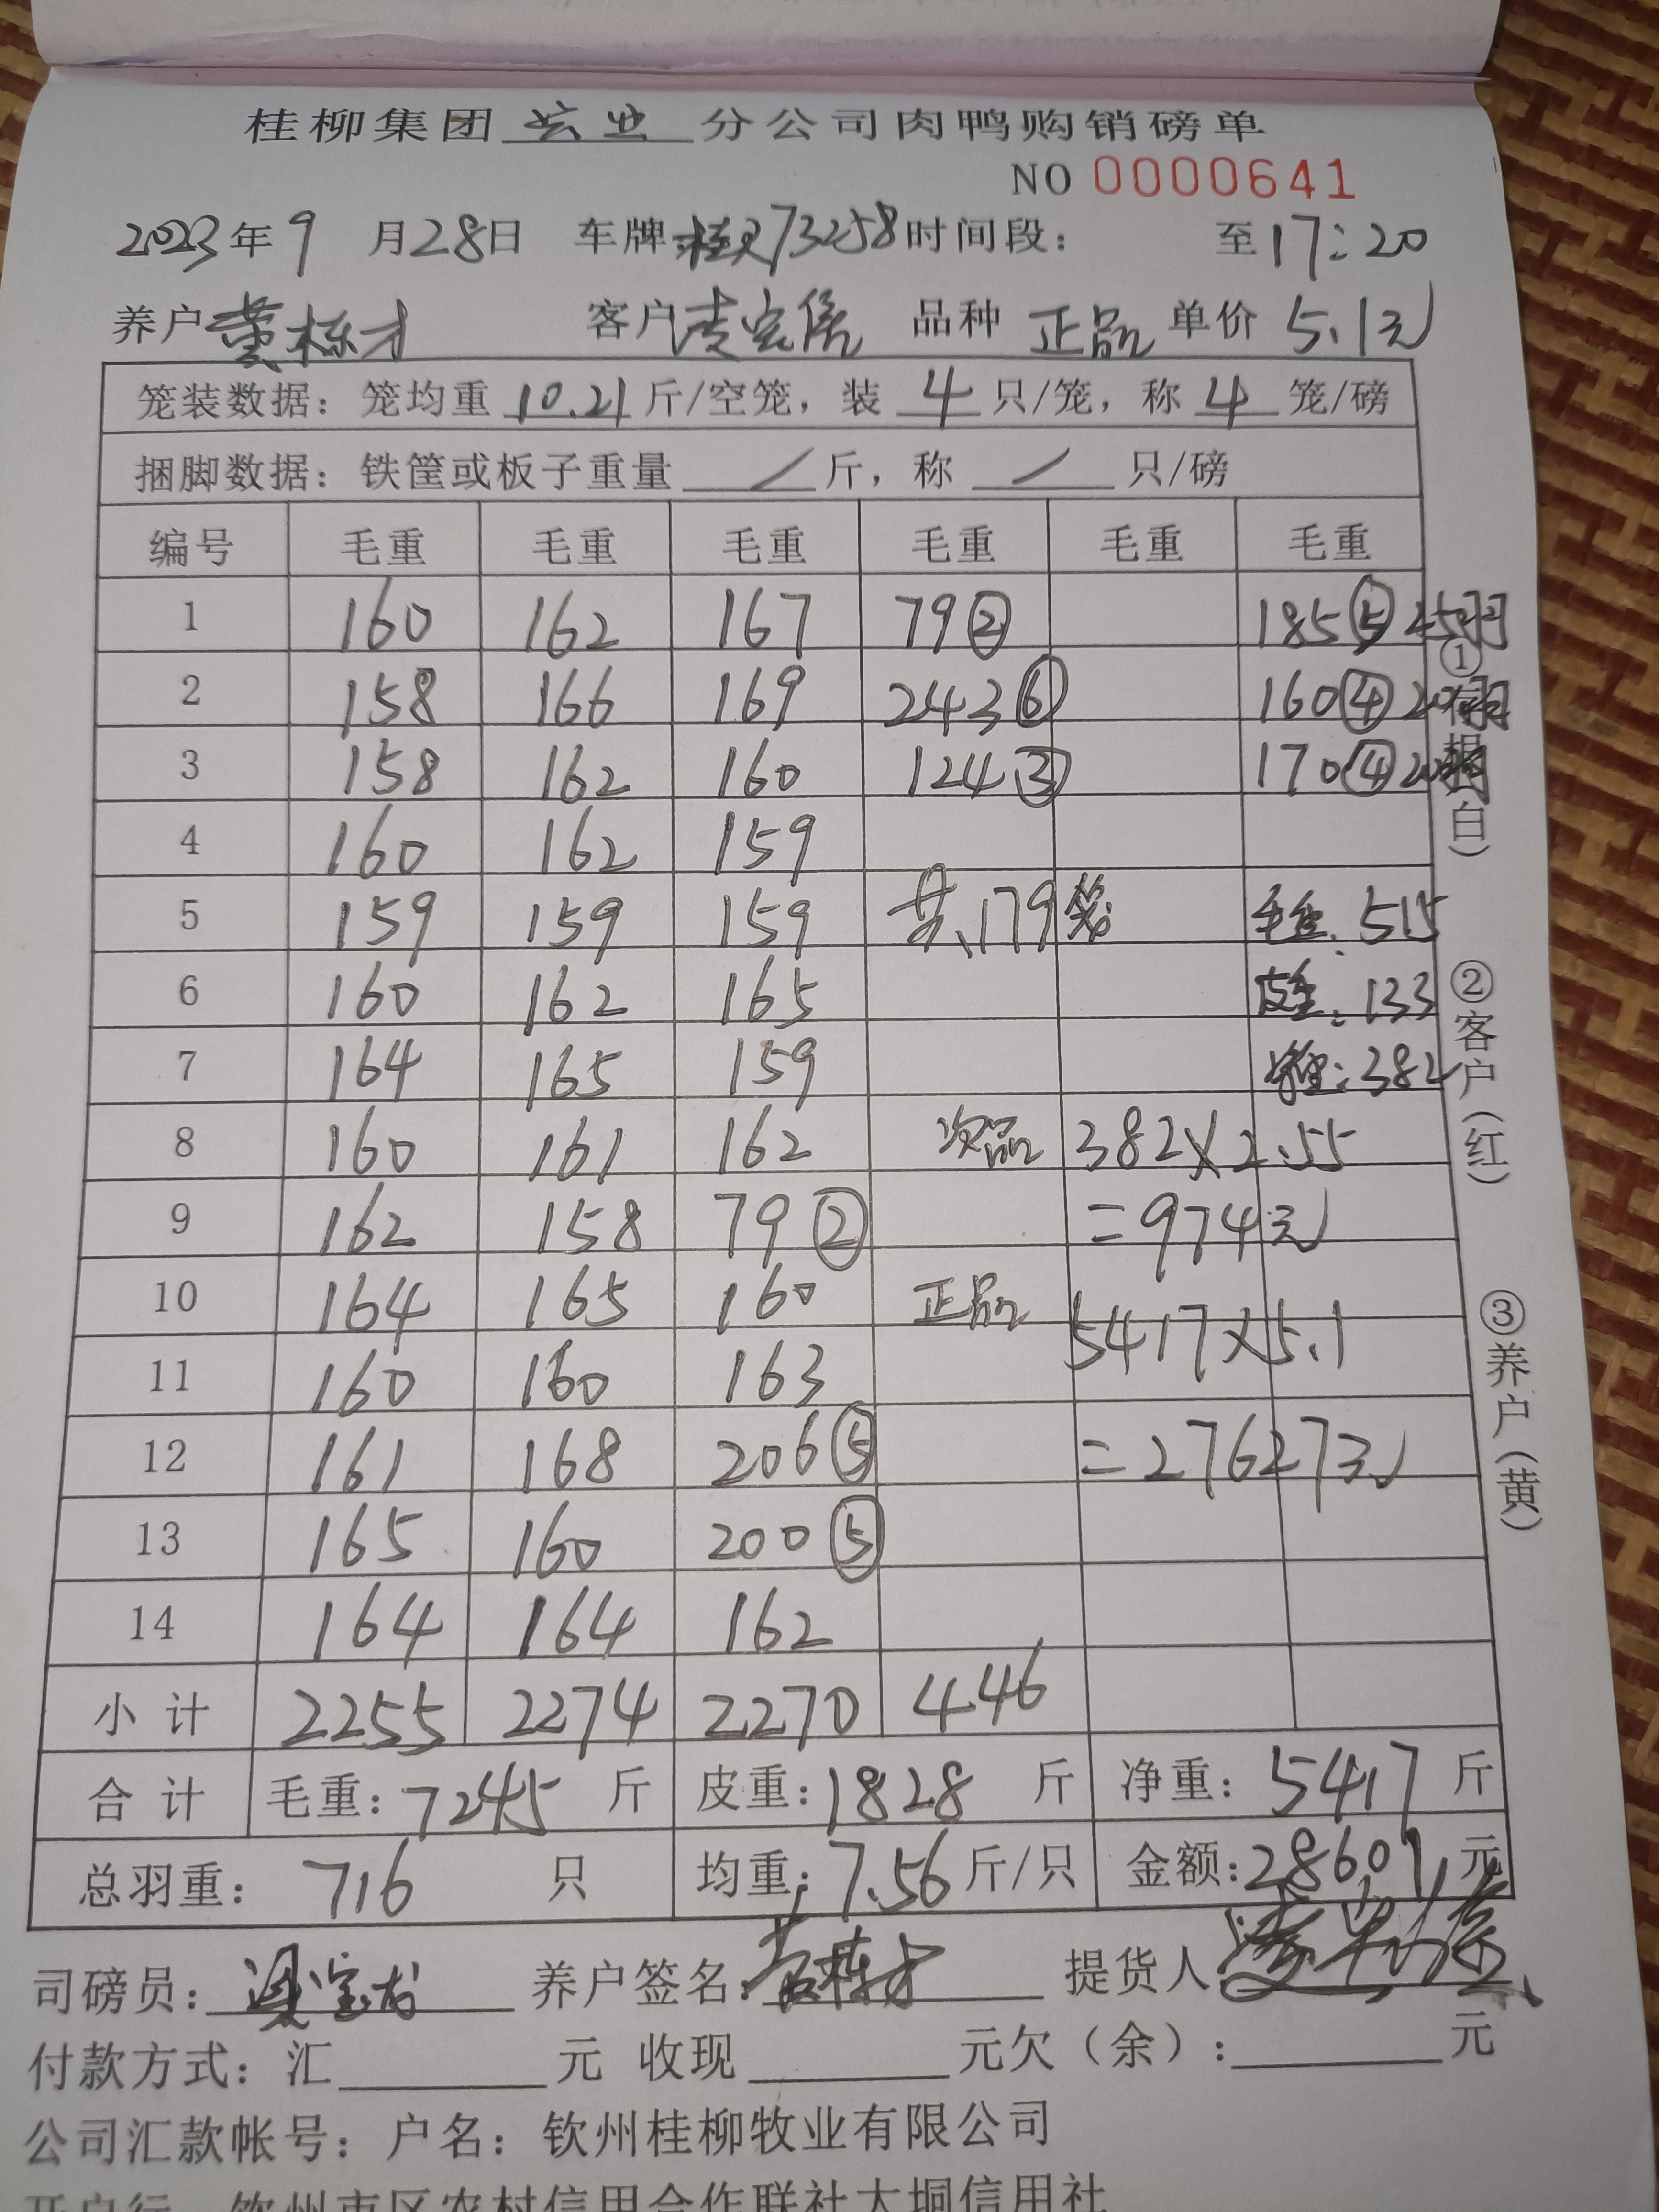 桂柳集团 宏业 分公司肉鸭购销磅单
NO 0000641
2023年9月28日 车牌:桂 73258 时间段: 至17:20
养户 黄栋才 客户 凌 品种 正品 单价 5.1元
笼装数据: 笼均重 10.21 斤/空笼, 装 4 只/笼, 称 4 笼/磅
捆脚数据: 铁筐或板子重量 / 斤, 称 / 只/磅
编号 毛重 毛重 毛重 毛重 毛重 毛重
1 160 162 167 79② 185⑤ 25羽
2 158 166 169 243⑥ 160④ 20羽
3 158 162 160 124③ 170④ 20羽
4 160 162 159
5 159 159 159 共179笼 毛重:515
6 160 162 165 皮重:133
7 164 165 159 净重:382
8 160 161 162 次品 382×2.55
9 162 158 79② =974元
10 164 165 160 正品 5417×5.1
11 160 160 163
12 161 168 206⑤ =27627元
13 165 160 200⑤
14 164 164 162
小计 2255 2274 2270 446
合计 毛重:7245 斤 皮重:1828 斤 净重:5417 斤
总羽重: 716 只 均重:7.56 斤/只 金额:28601 元
司磅员: 宝龙 养户签名:黄栋才 提货人 凌
付款方式: 汇 元 收现 元欠(余): 元
公司汇款帐号: 户名: 钦州桂柳牧业有限公司
开户行 钦州市区农村信用合作联社大垌信用社
①
根
白)
②客户(红)
③养户(黄)